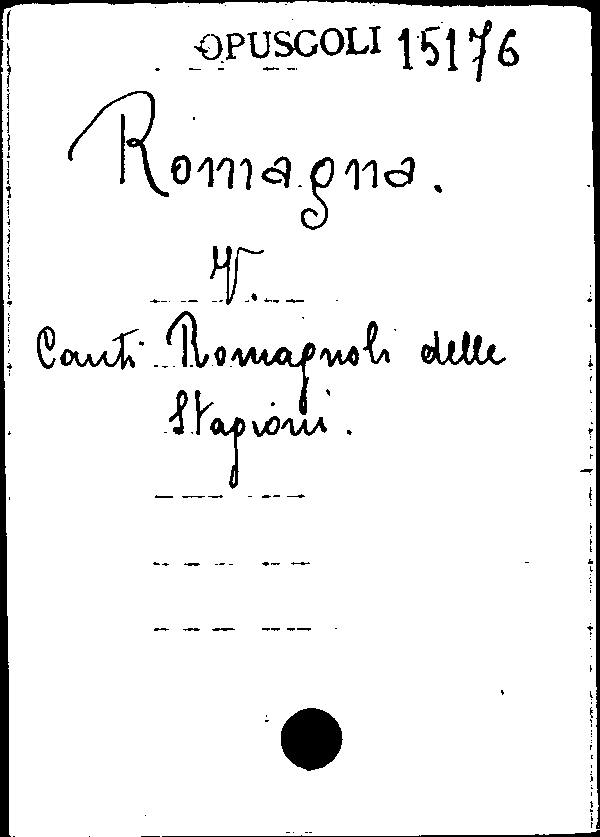 OPUSCOLI 15176
Romagna.
V.
Canti Romagnoli delle
Stagioni.